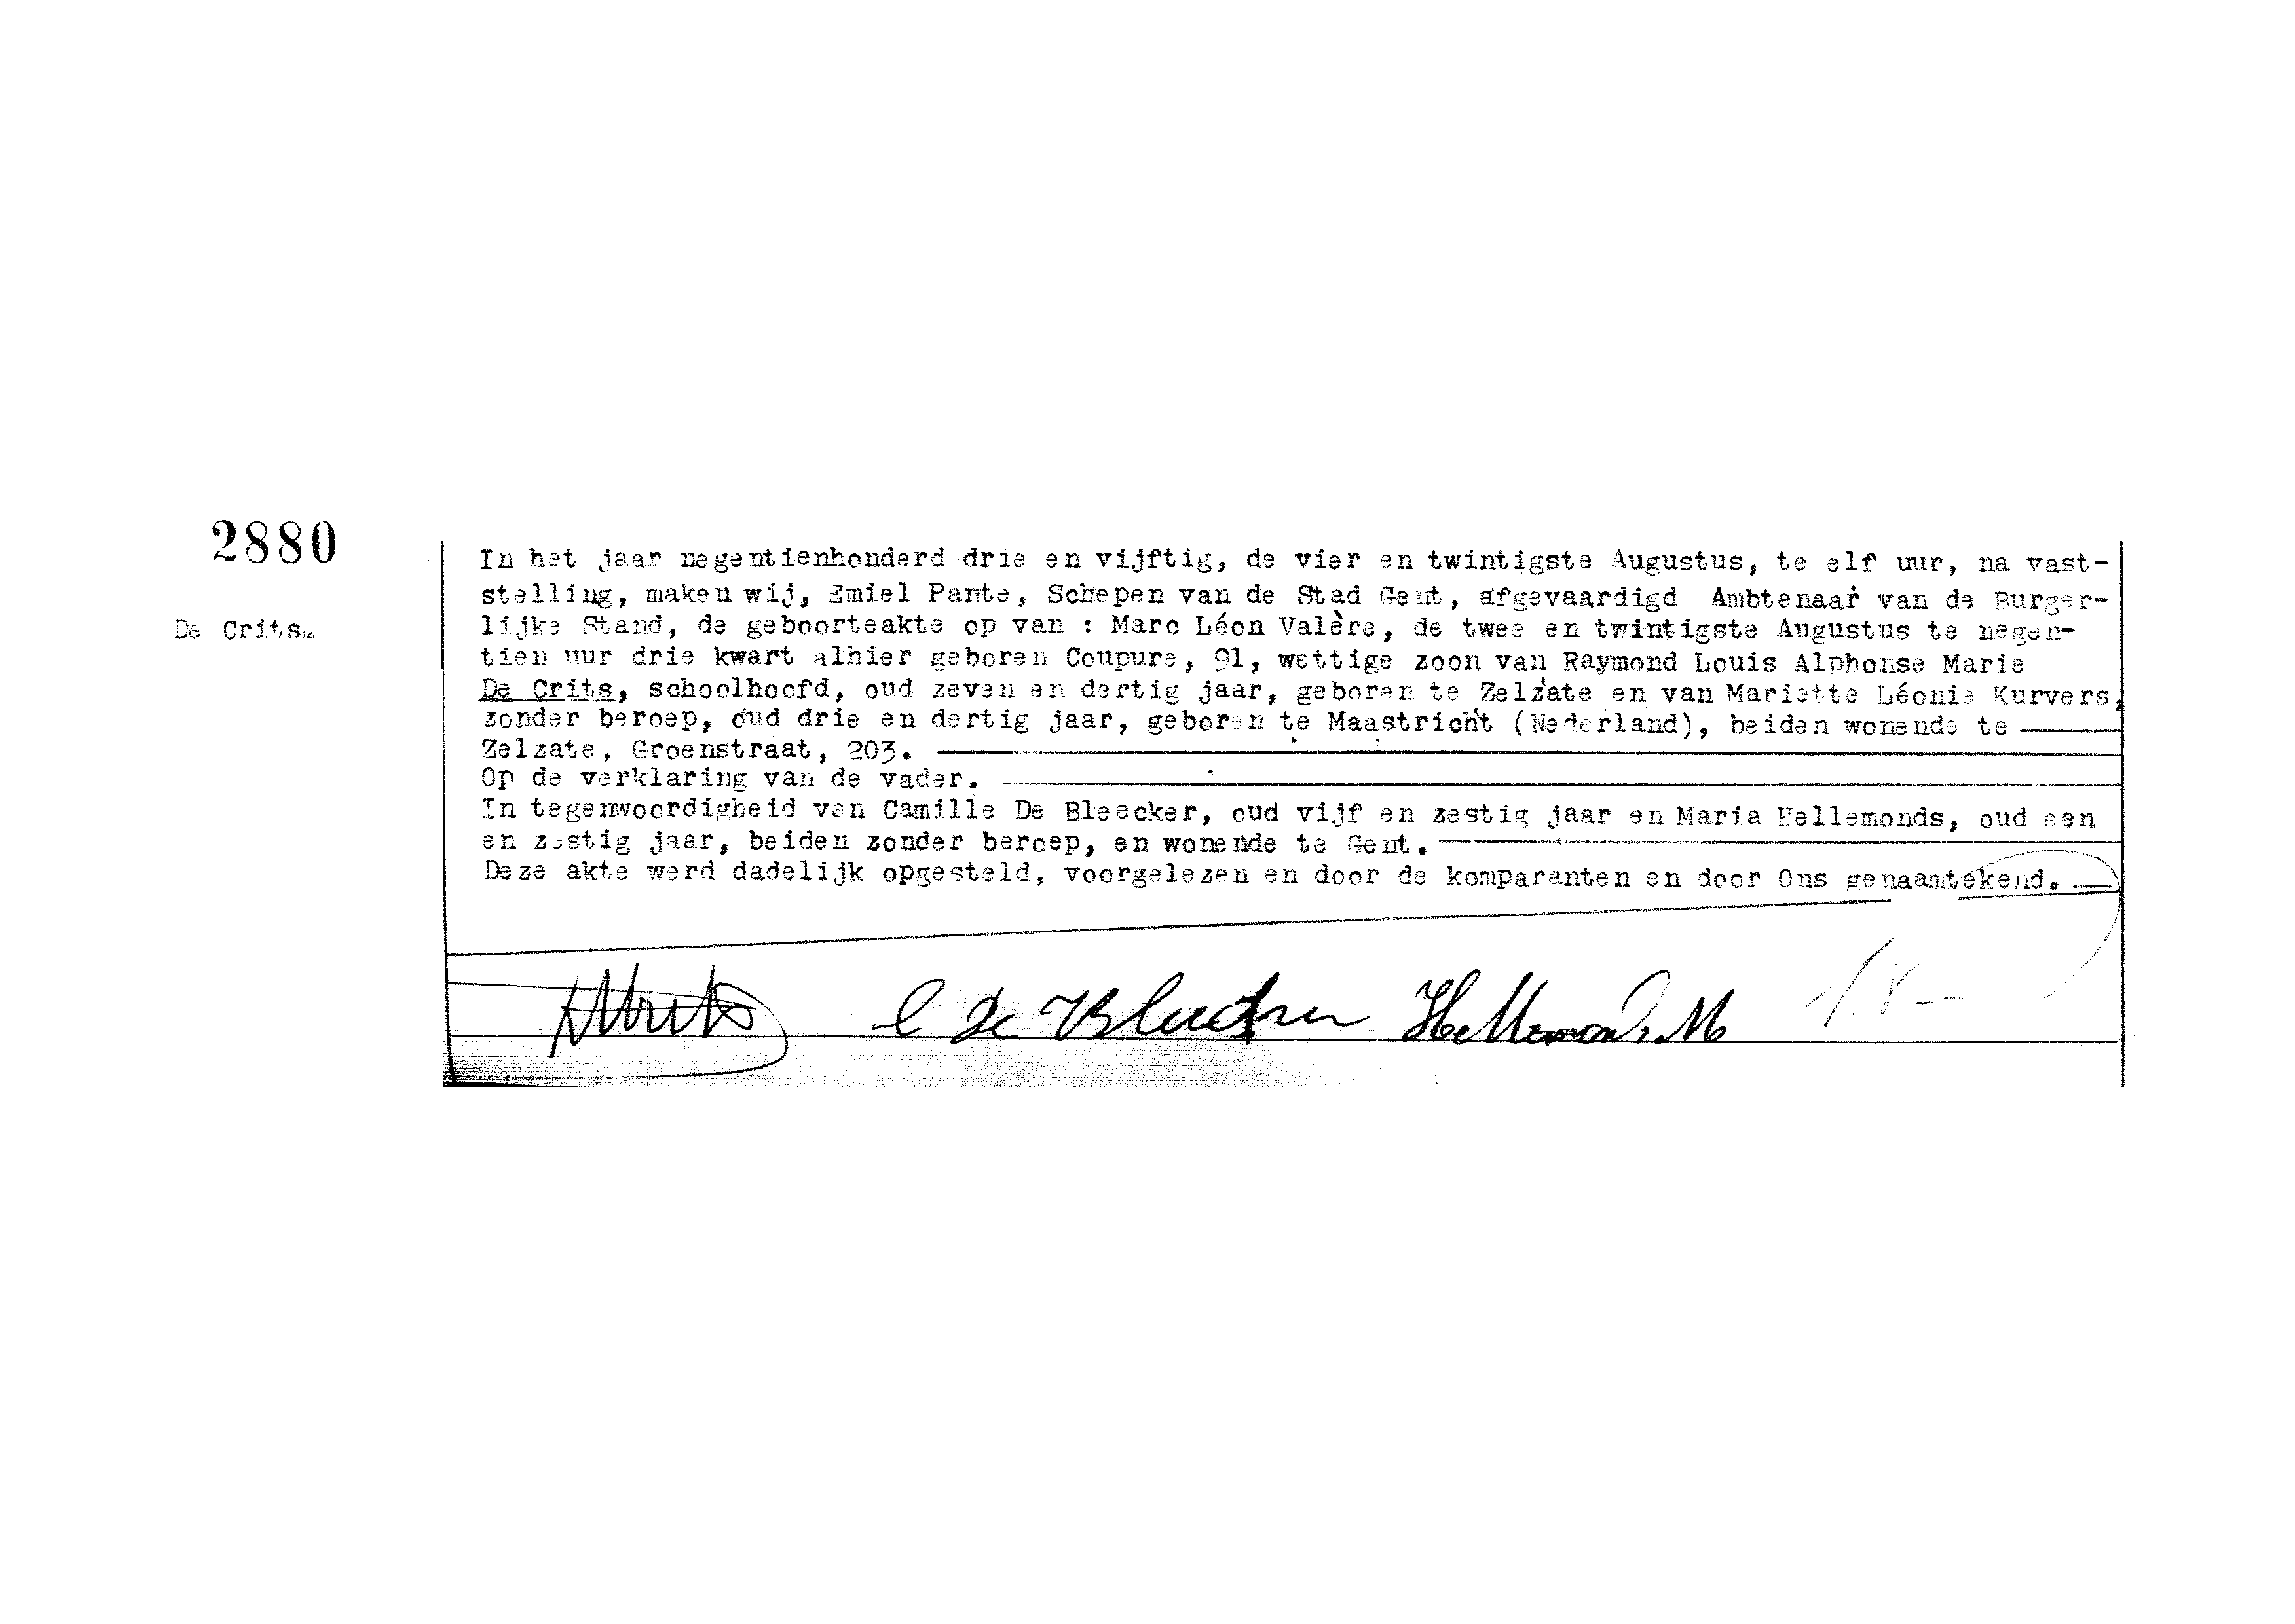 2880
De Crits.
In het jaar negentienhonderd drie en vijftig, de vier en twintigste Augustus, te elf uur, na vast-
stelling, maken wij, Emiel Pante, Schepen van de Stad Gent, afgevaardigd Ambtenaar van de Burger-
lijke Stand, de geboorteakte op van : Marc Léon Valère, de twee en twintigste Augustus te negen-
tien uur drie kwart alhier geboren Coupure, 91, wettige zoon van Raymond Louis Alphonse Marie
De Crits, schoolhoofd, oud zeven en dertig jaar, geboren te Zelzate en van Mariette Léonie Kurvers,
zonder beroep, oud drie en dertig jaar, geboren te Maastricht (Nederland), beiden wonende te
Zelzate, Groenstraat, 203.
Op de verklaring van de vader.
In tegenwoordigheid van Camille De Bleecker, oud vijf en zestig jaar en Maria Hellemonds, oud een
en zestig jaar, beiden zonder beroep, en wonende te Gent.
Deze akte werd dadelijk opgesteld, voorgelezen en door de komparanten en door Ons genaamtekend.
C De Bleecker Hellemonds M